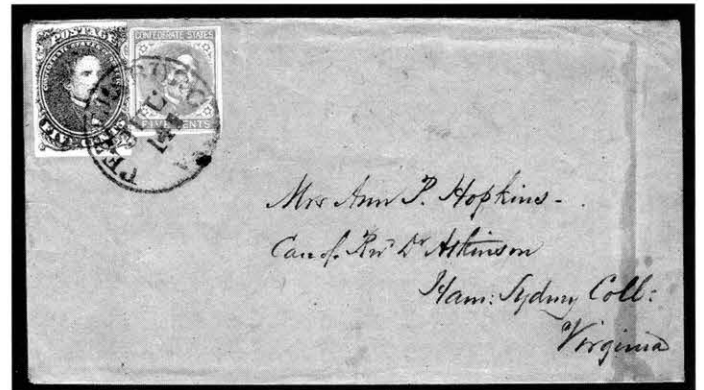 POSTAGE
CONFEDERATE STATES
FIVE CENTS
CONFEDERATE STATES
FIVE CENTS
Mrs Ann P. Hopkins -
Care of. Rev^d D^r Atkinson
Ham: Sydney Coll:
Virginia